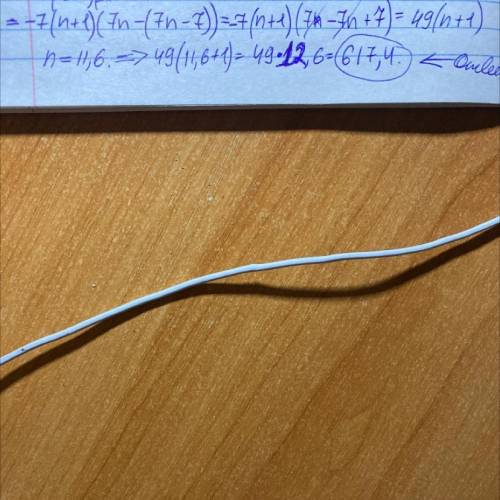 = -7(n+1)(7n-(7n-7))=-7(n+1)(7n-7n+7)= 49(n+1)
n=11,6. => 49(11,6+1)= 49·12,6=617,4. ←